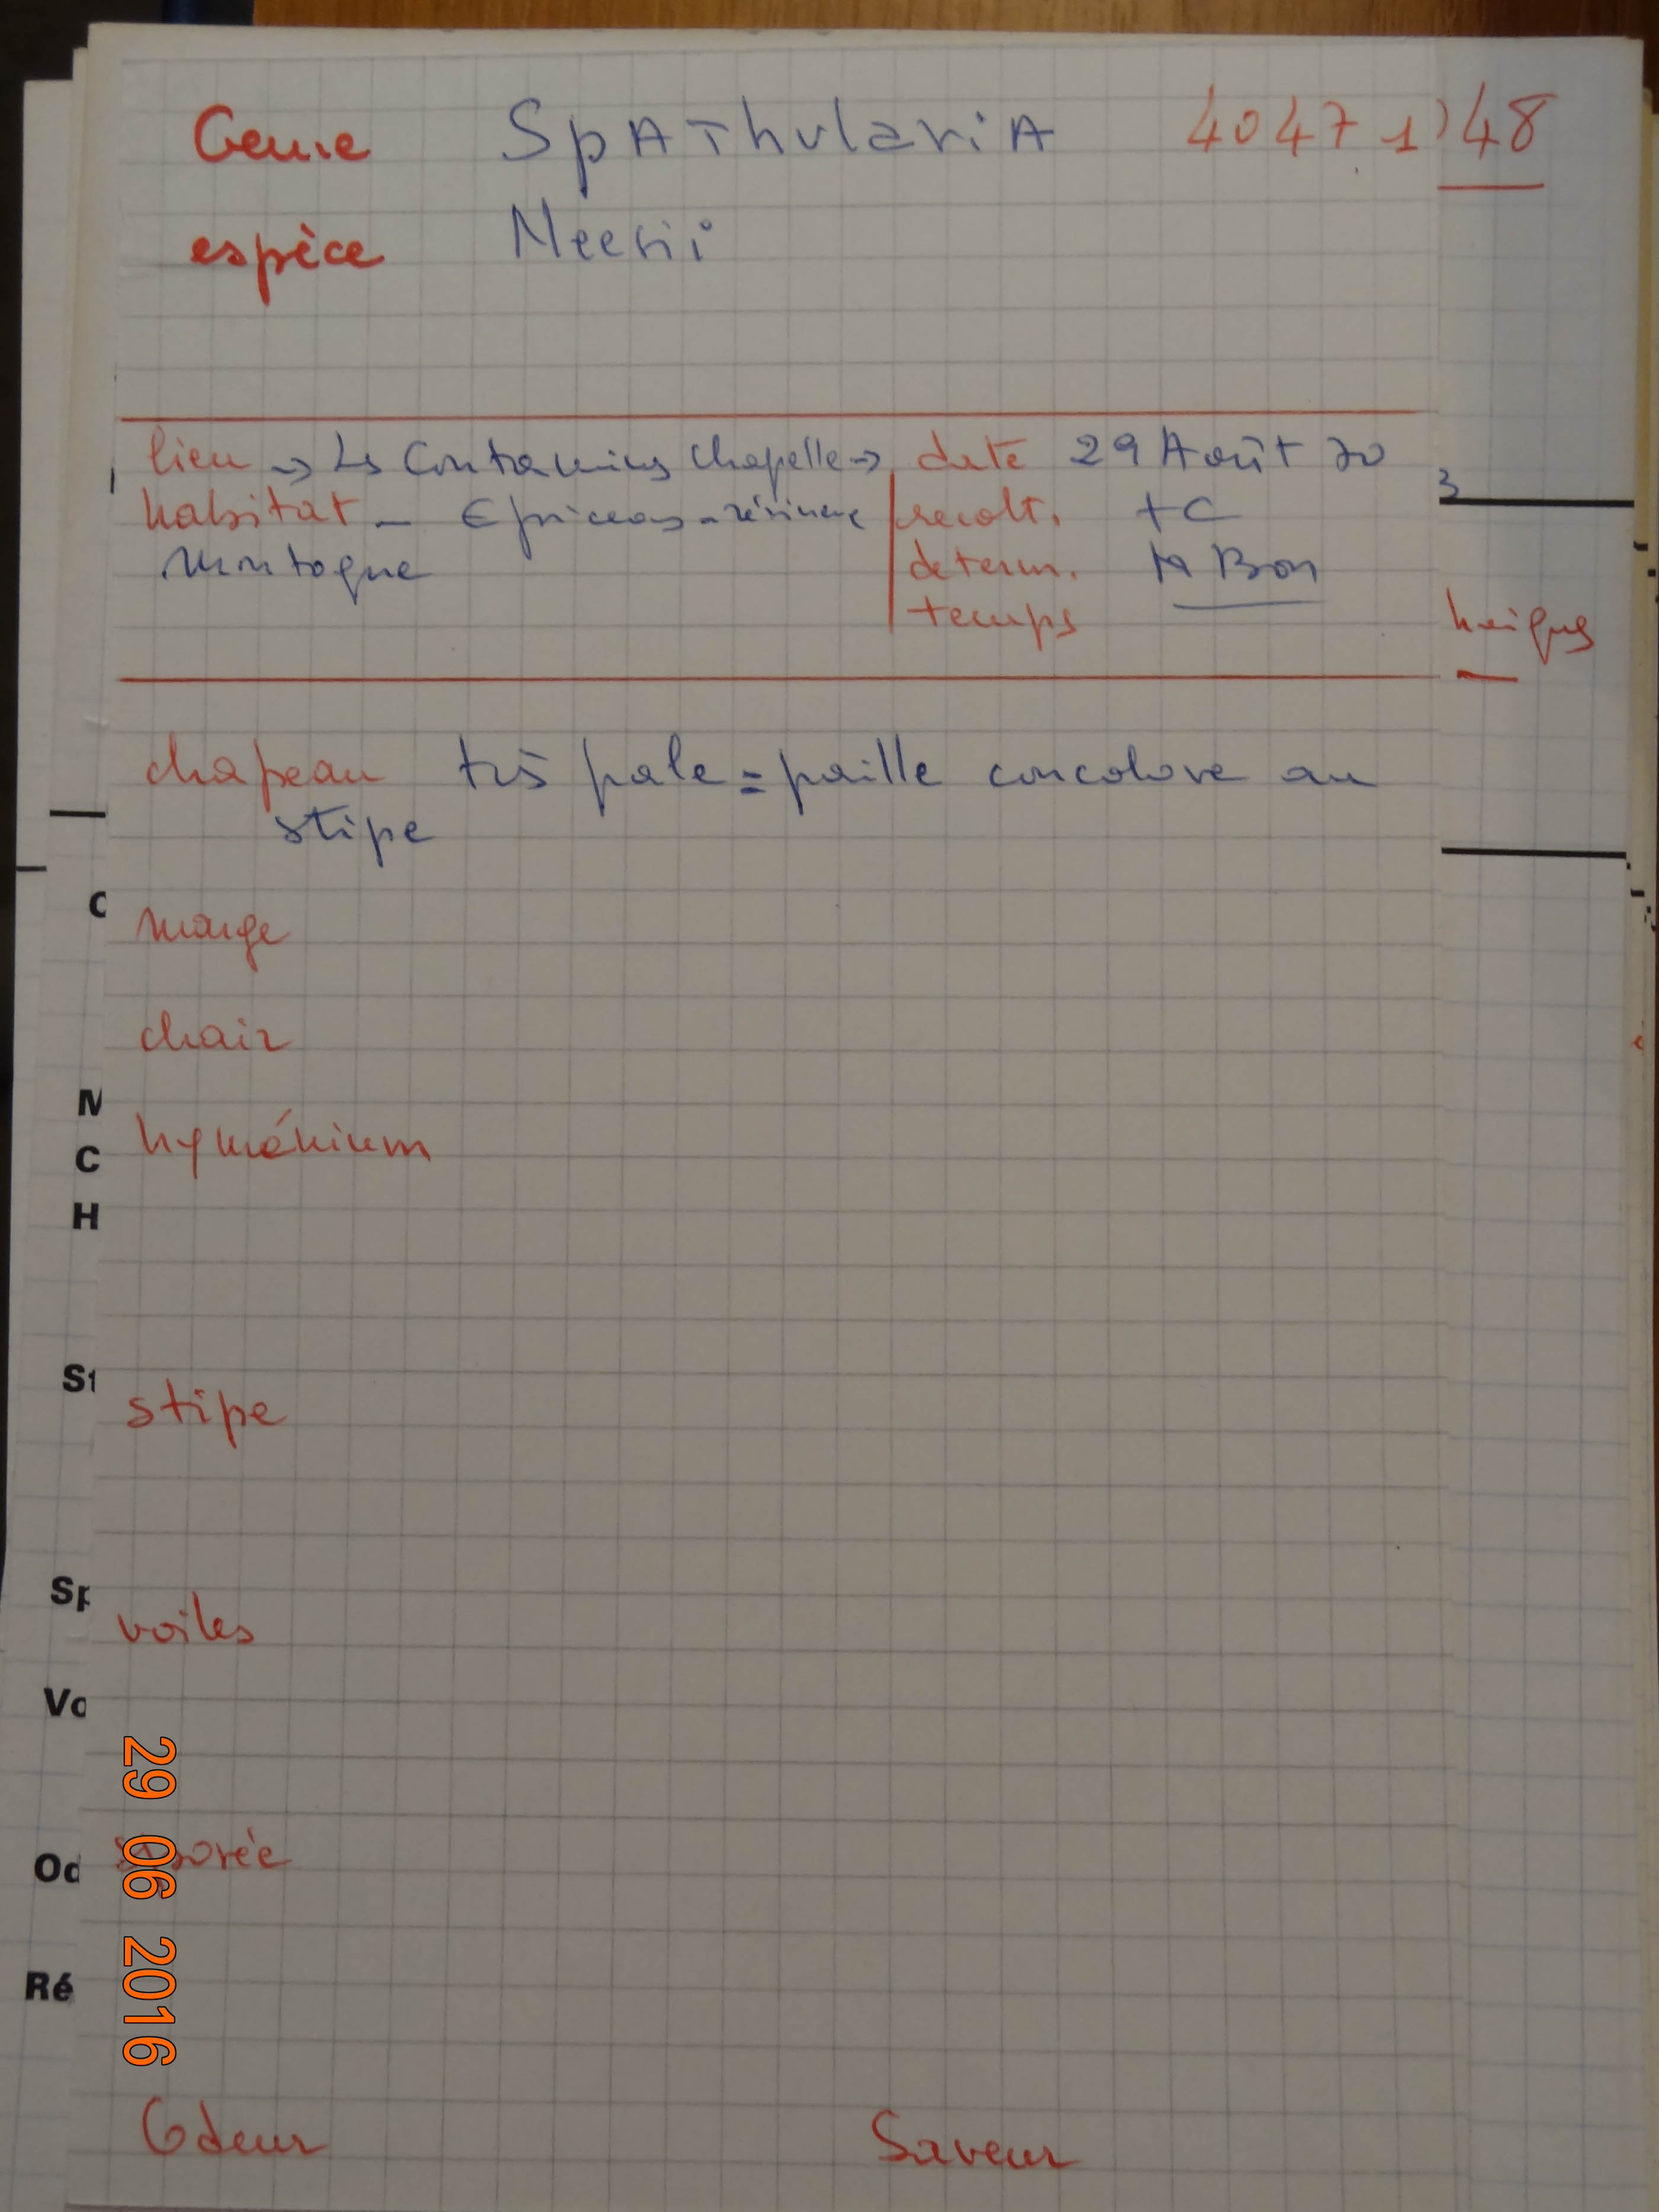 Genre SpAThulariA 40471 48
espèce Neesii
lieu → Les Contamines Chapelle → date 29 Août 70
habitat - Epiceas - résineux recolt. + C
montagne determ. M Bon
temps
chapeau très pale = paille concolore au
stipe
marge
chair
hyménium
stipe
voiles
sporée
Odeur Saveur
3
C
M
C
H
St
Sp
Vo
Od
Ré
29 06 2016